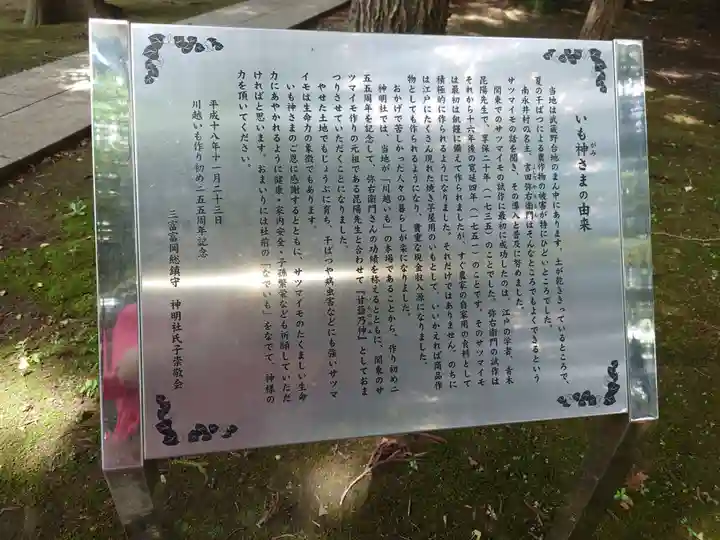 いも神さまの由来
がみ
当地は武蔵野台地のまん中にあります。土が乾ききっているところで、
夏の干ばつによる農作物の被害が特にひどいところでした。
南永井村の名主、吉田弥右衛門はそんなところでもよくできるという
サツマイモの話を聞き、その導入と普及に努めました。
関東でのサツマイモの試作に最初に成功したのは、江戸の学者、青木
昆陽先生で、享保二十年（一七三五）のことでした。弥右衛門の試作は
それから十六年後の寛延四年（一七五一）のことです。そのサツマイモ
は最初は飢饉に備えて作られましたが、すぐ農家の自家用の食料として
積極的に作られるようになりました。それだけではありません。のちに
は江戸にたくさん現れた焼き芋屋用のいもとして、いいかえれば商品作
物としても作られるようになり、貴重な現金収入源になりました。
おかげで苦しかった人々の暮らしが楽になりました。
神明社では、当地が「川越いも」の本場であることから、作り初め二
五五周年を記念して、弥右衛門さんの功績を称えるとともに、関東のサ
ツマイモ作りの元祖である昆陽先生と合わせて『甘藷乃神』としておま
つりさせていただくことになりました。
やせた土地でもじょうぶに育ち、干ばつや病虫害などにも強いサツマ
イモは生命力の象徴でもあります。
いも神さまのご恩に感謝するとともに、サツマイモのたくましい生命
力にあやかれるように健康・家内安全・子孫繁栄なども祈願していただ
ければと思います。おまいりには社前の「なでいも」をなでて、神様の
力を頂いてください。
平成十八年十一月二十三日
川越いも作り初め二五五周年記念
三富富岡総鎮守　神明社氏子崇敬会